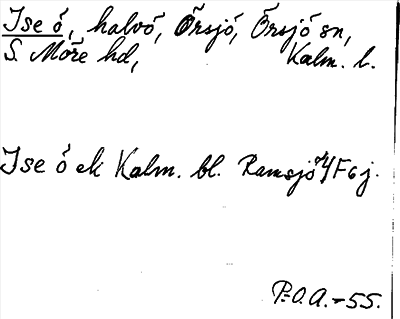 Ise ö, halvö, Örsjö, Örsjö sn,
S. Möre hd, Kalm. l.
Ise ö ek Kalm. bl. Ramsjö 4/F6j.
P.-O.A.-55.